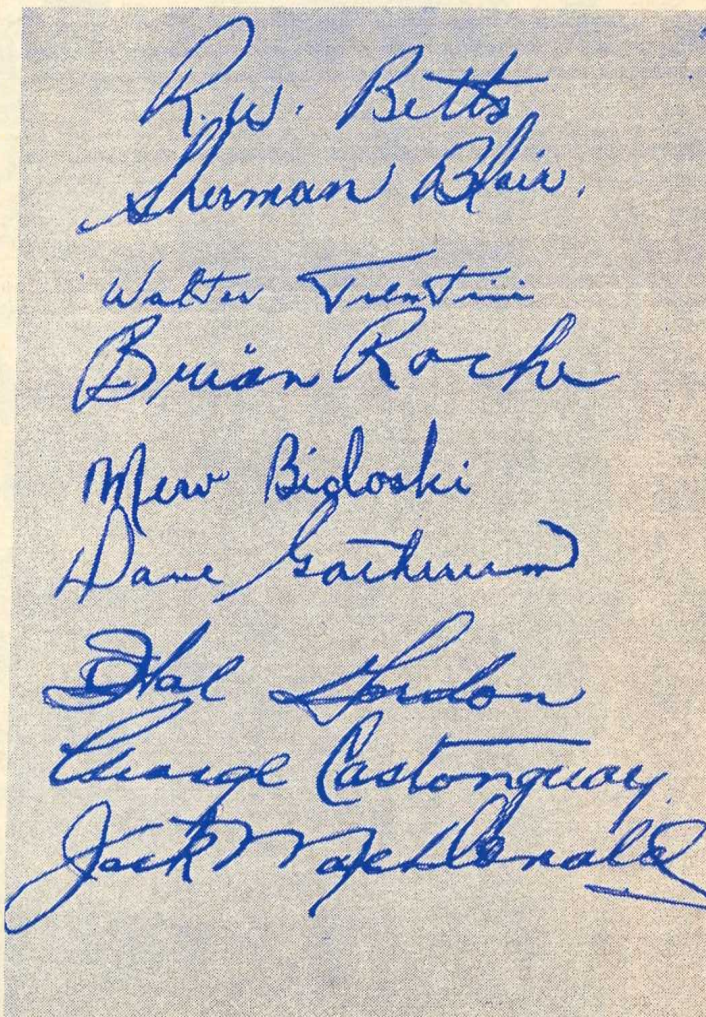 R. W. Betts
Sherman Blair.
Walter Trentini
Brian Roche
Merv Bidoski
Dave Gatherum
Hal Gordon
George Castonguay
Jack MacDonald